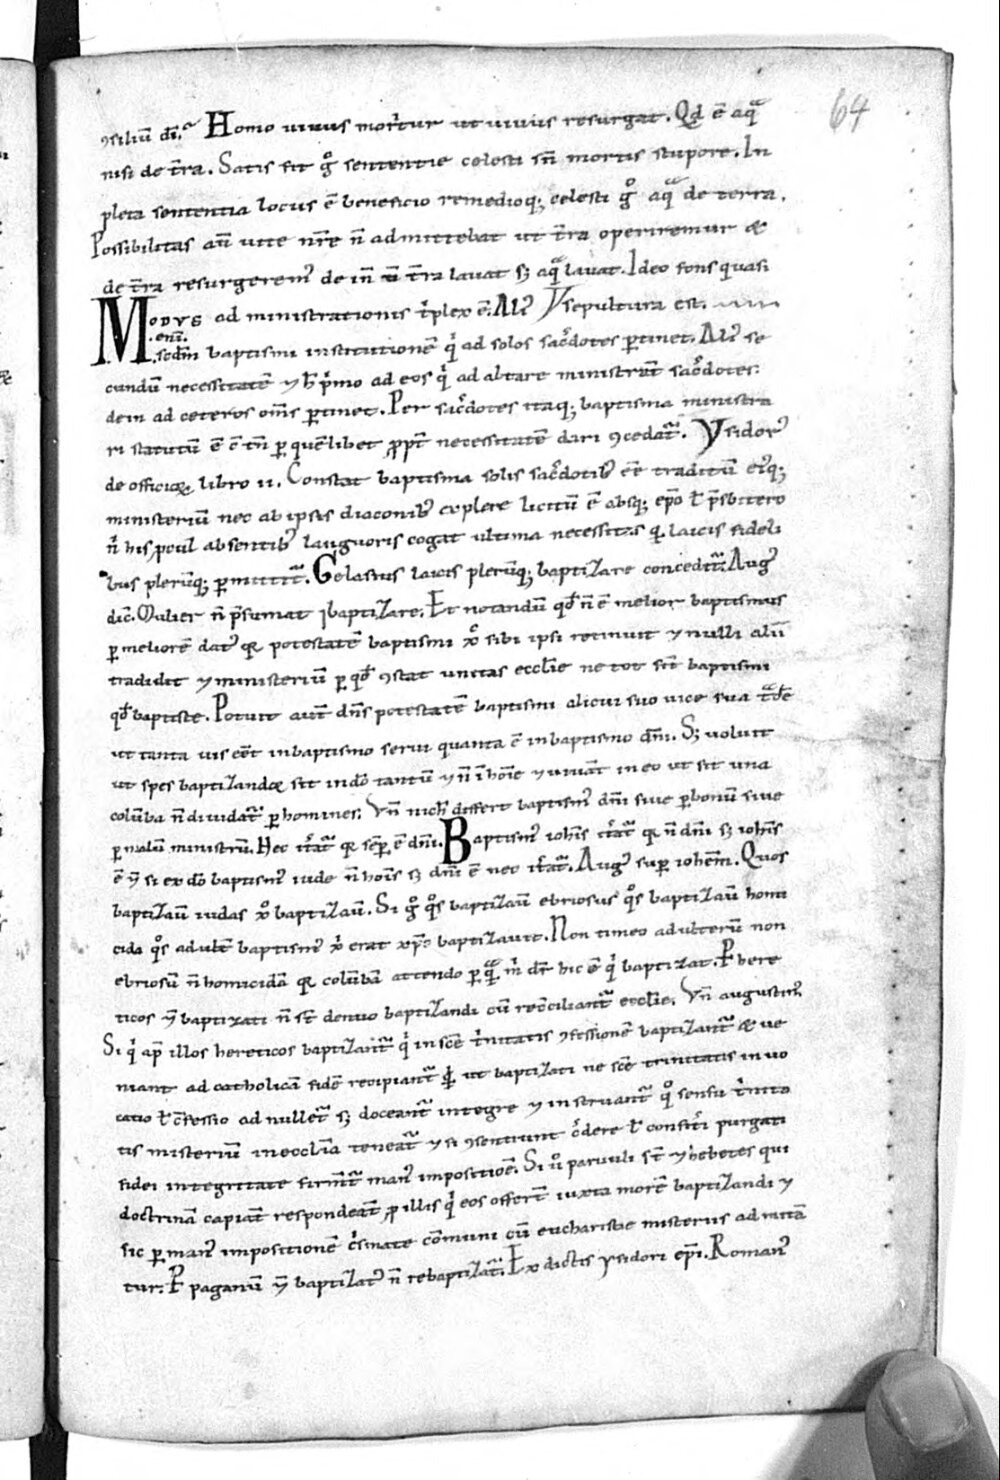 64
ꝯsiliū dī. Homo uiuus morit̄ur ut uiuus resurgat. Qd̄ ē aqͣ
nisi de t̄ra. Satis fit gͦ sententie celesti sn̄ mortis stupore. In
pleta sententia locus ē beneficio remedioq; celesti gͦ aqͣ de terra.
Possibilitas aū uite nr̄e n̄ admittebat ut t̄ra operiremur &
de t̄ra resurgerem᷒ de in̄ n̄ t̄ra lauat s; aqͣ lauat. Ideo fons quasi
Modus ad ministrationis t̄plex ē. Al᷒ sepultura est.
.eni.
sedm̄ baptismi institutionē qͥ ad solos sac̄dotes ꝑtinet. Al᷒ se
cundū necessitatē ⁊ h̄ pͥmo ad eos qͥ ad altare ministrāt sac̄dotes.
dein ad ceteros om̄s ꝑtinet. Per sac̄dotes itaq; baptisma ministra
ri statutū ē ē tn̄ ꝑ quēlibet ꝓpt̄ necessitatē dari ꝯcedat᷑. Ysidor᷒
de officiꝫ libro ii. Constat baptisma solis sac̄dotib᷒ eē traditū ei᷒q;
ministeriū nec ab ipsis diaconib᷒ explere licitū ē absq; ep̄o ł p̄sbitero
n̄ his ꝓcul absentib᷒ languoris cogat ultima necessitas qͥ laicis fideli
bus plerūq; ꝑmittit᷑. Gelasius laicis plerūq; baptizare concedit᷑. Aug᷒
dic̄. Mulier n̄ p̄sumat baptizare. Et notandū qd̄ n̄ ē melior baptismus
ꝑ meliorē dat᷒ qꝛ potestatē baptismi xͦ sibi ipsi retinuit ⁊ nulli aliī
tradidit ⁊ ministeriū ꝑ qd̄ ꝯstat unitas ecclīe ne tot sēt baptismi
qd̄ baptiste. Potuit aut̄ dn̄s potestatē baptismi alicui suo uice sua t̄de
ut tanta uis eēt in baptismo serui quanta ē in baptismo dn̄i. S; uoluit
ut spes baptizandoꝫ sit in dō tantū ⁊ n̄ ī hoīe ⁊ uiuāt in eo ut sit una
colūba n̄ diuidat᷑ ꝑ homines. Vn̄ nich̄ differt baptism᷒ dn̄i siue ꝑ bonū siue
ꝑ malū ministrū. Hec it̄at᷑ qꝛ semꝑ ē dn̄i. Baptism᷒ ioh̄is it̄at᷑ qꝛ n̄ dn̄i s; ioh̄is
ē ⁊̄ si ex dō baptism᷒ iude n̄ hoīs s; dn̄i ē nec it̄at᷑. Aug᷒ suꝑ ioh̄em. Quos
baptizaū iudas xͦ baptizaū. Si gͦ qͦs baptizaū ebriosus qͦs baptizaū homi
cida qͦs adult̄ baptism᷒ xͥ erat xp̄c baptizauit. Non timeo adulterū non
ebriosū n̄ homicidā qꝛ colūbā attendo ꝑ qͣ m̄ dr̄ hic ē qͥ baptizat. P̱ here
ticos ⁊̄ baptizati n̄ st̄ denuo baptizandi cū reꝯciliant᷑ ecclīe. Vn̄ augustin᷒.
Si qͥ ap̄ illos hereticos baptizant᷑ qͥ in scē tͥnitatis ꝯfessionē baptizant᷑ & ue
niant ad catholicā fidē recipiant᷑ qͥ ut baptizati ne scē trinitatis inuo
catio ł c̄fessio ad nullet᷑ s; doceant᷑ integre ⁊ instruant᷑ qͦ sensu tͥnita
tis misteriū in ecclīa teneat᷑ ⁊ si ꝯsentiunt c̄dere ł confit̄ri purgati
fidei integritate firm̄t᷑ man᷒ impositioē. Si uͦ paruuli st̄ ⁊ hebetes qui
doctrinā capiāt respondeāt ꝓ illis qͥ eos offerūt iuxta morē baptizandi ⁊
sic ꝑ man᷒ impositionē c̄smate cōmuni cū eucharistie misteriis admitā
tur. P̱ paganū ⁊̄ baptizat᷒ n̄ rebaptizat᷑. Ex dictis ysidori ep̄i. Roman᷒